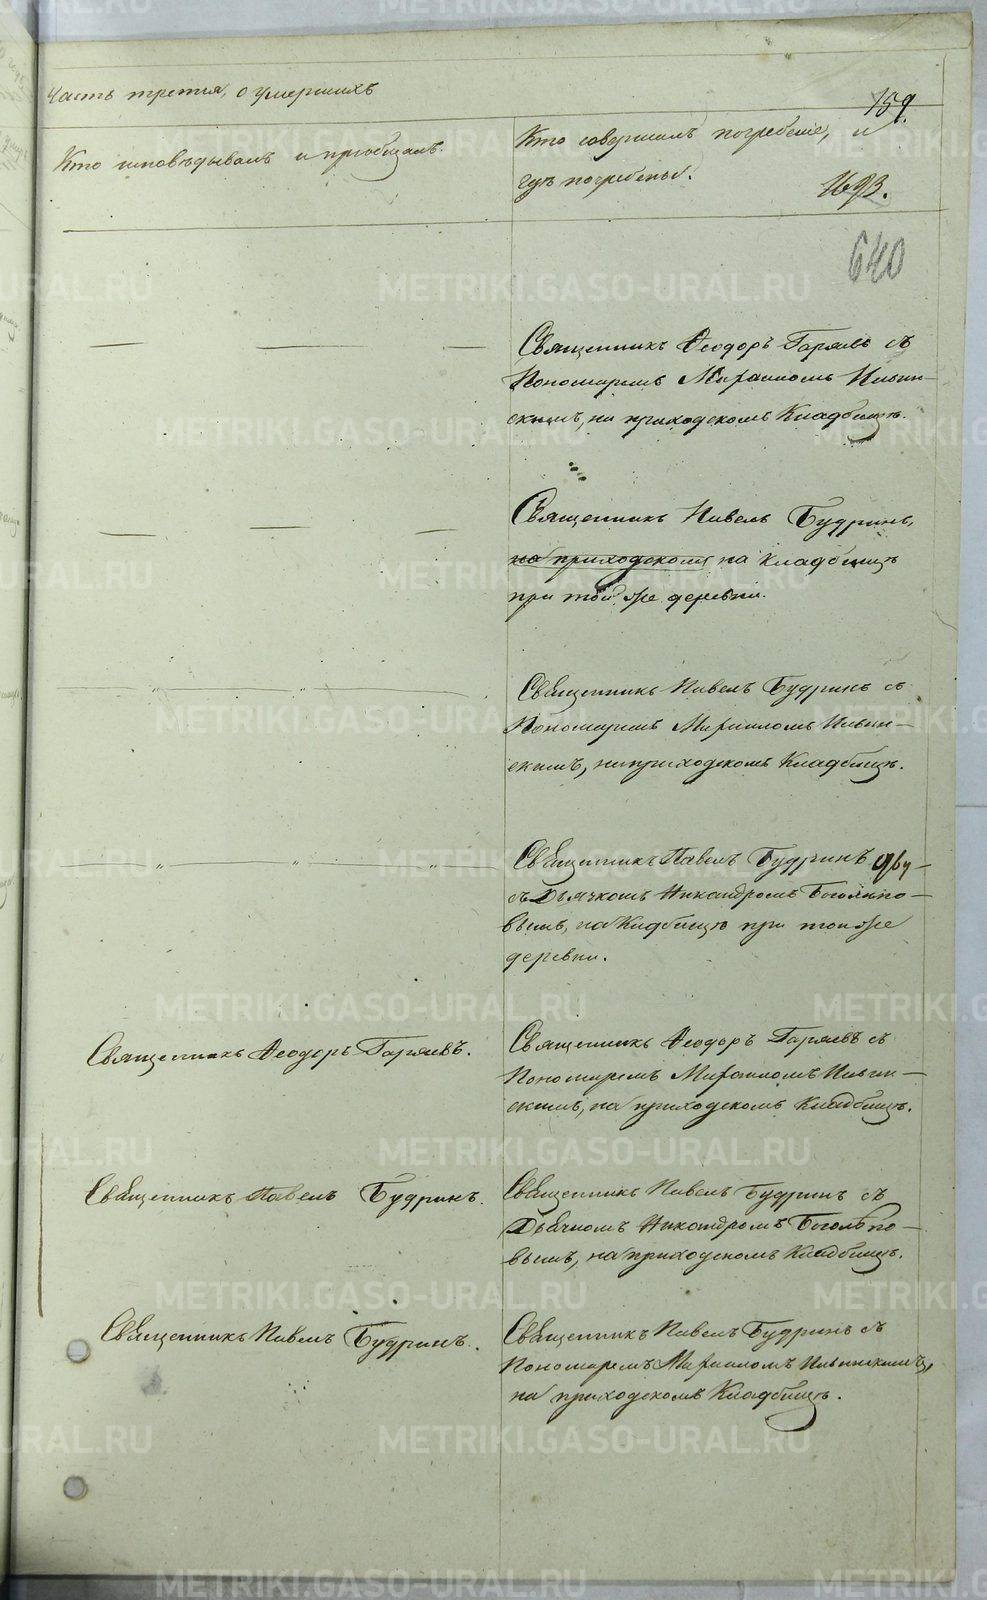 Часть третья, о умершихъ
159.
Кто исповѣдывалъ и приобщалъ.
Кто совершалъ погребеніе, и
гдѣ погребены.
1693.
640
Священникъ Ѳеодоръ Гаряевъ съ
Пономаремъ Михаиломъ Ильин-
скимъ, на приходскомъ Кладбищѣ.
Священникъ Павелъ Будринъ,
на приходскомъ на кладбищѣ
при той же деревни.
Священникъ Павелъ Будринъ съ
Пономаремъ Михаиломъ Ильин-
скимъ, на приходскомъ Кладбищѣ.
Священникъ Павелъ Будринъ
съ Дьячкомъ Никандромъ Боголѣпо-
вымъ, на Кладбищѣ при той же
деревни.
Священникъ Ѳеодоръ Гаряевъ.
Священникъ Ѳеодоръ Гаряевъ съ
Пономаремъ Михаиломъ Ильин-
скимъ, на приходскомъ Кладбищѣ.
Священникъ Павелъ Будринъ.
Священникъ Павелъ Будринъ съ
Дьячкомъ Никандромъ Боголѣпо-
вымъ, на приходскомъ Кладбищѣ.
Священникъ Павелъ Будринъ.
Священникъ Павелъ Будринъ съ
Пономаремъ Михаиломъ Ильинскимъ,
на приходскомъ Кладбищѣ.
METRIKI.GASO-URAL.RU